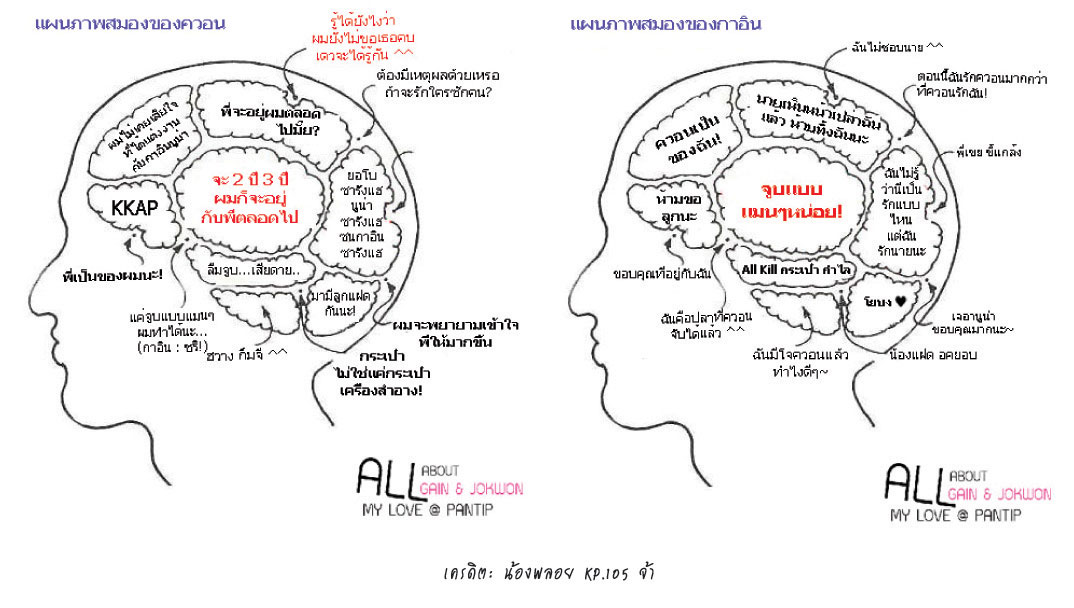 แผนภาพสมองของควอน
รู้ได้ยังไงว่า
ผมยังไม่ขอเธอคบ
เดวจะได้รู้กัน ^^
ต้องมีเหตุผลด้วยเหรอ
ถ้าจะรักใครซักคน?
ผมไม่เคยเสียใจ
ที่ได้แต่งงาน
กับกาอินนูน่า
พี่จะอยู่ผมตลอด
ไปมั๊ย?
KKAP
จะ 2 ปี 3 ปี
ผมก็จะอยู่
กับพี่ตลอดไป
ยอโบ
ซารังแฮ
นูน่า
ซารังแฮ
ซนกาอิน
ซารังแฮ
พี่เป็นของผมนะ!
ลืมจูบ...เสียดาย..
มามีลูกแฝด
กันนะ!
แค่จูบแบบแมนๆ
ผมทำได้นะ...
(กาอิน : ชริ!)
ฮวาง กึมจี ^^
ผมจะพยายามเข้าใจ
พี่ให้มากขึ้น
กระเปา
ไม่ใช่แค่กระเปา
เครื่องสำอาง!
ALL ABOUT
GAIN & JOKWON
MY LOVE @ PANTIP
แผนภาพสมองของกาอิน
ฉันไม่ชอบนาย ^^
ตอนนี้ฉันรักควอนมากกว่า
ที่ควอนรักฉัน!
ควอนเป็น
ของฉัน!
นายเห็นหน้าเปล่าฉัน
แล้ว ห้ามทิ้งฉันนะ
พี่เขย ขี้แกล้ง
ห้ามขอ
ลูกนะ
จูบแบบ
แมนๆหน่อย!
ฉันไม่รู้
ว่านี่เป็น
รักแบบ
ไหน
แต่ฉัน
รักนายนะ
ขอบคุณที่อยู่กับฉัน
All Kill กระเปา กำไล
โยบง ♥
ฉันคือปลาที่ควอน
จับได้แล้ว ^^
เจอานูน่า
ขอบคุณมากนะ~
ฉันมีใจควอนแล้ว
ทำไงดีๆ~
น้องแฝด อคยอบ
ALL ABOUT
GAIN & JOKWON
MY LOVE @ PANTIP
เครดิต: น้องพลอย KP.105 จ้า